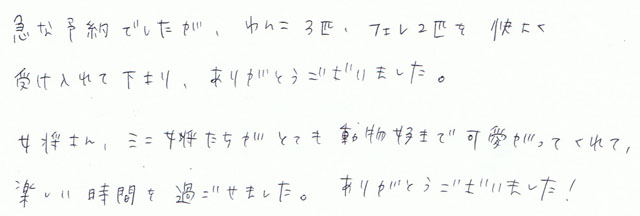 急な予約でしたが、わんこ3匹、フェレ2匹を快よく
受け入れて下さり、ありがとうございました。
女将さん、ミニ女将たちがとても動物好きで可愛がってくれて、
楽しい時間を過ごせました。ありがとうございました!